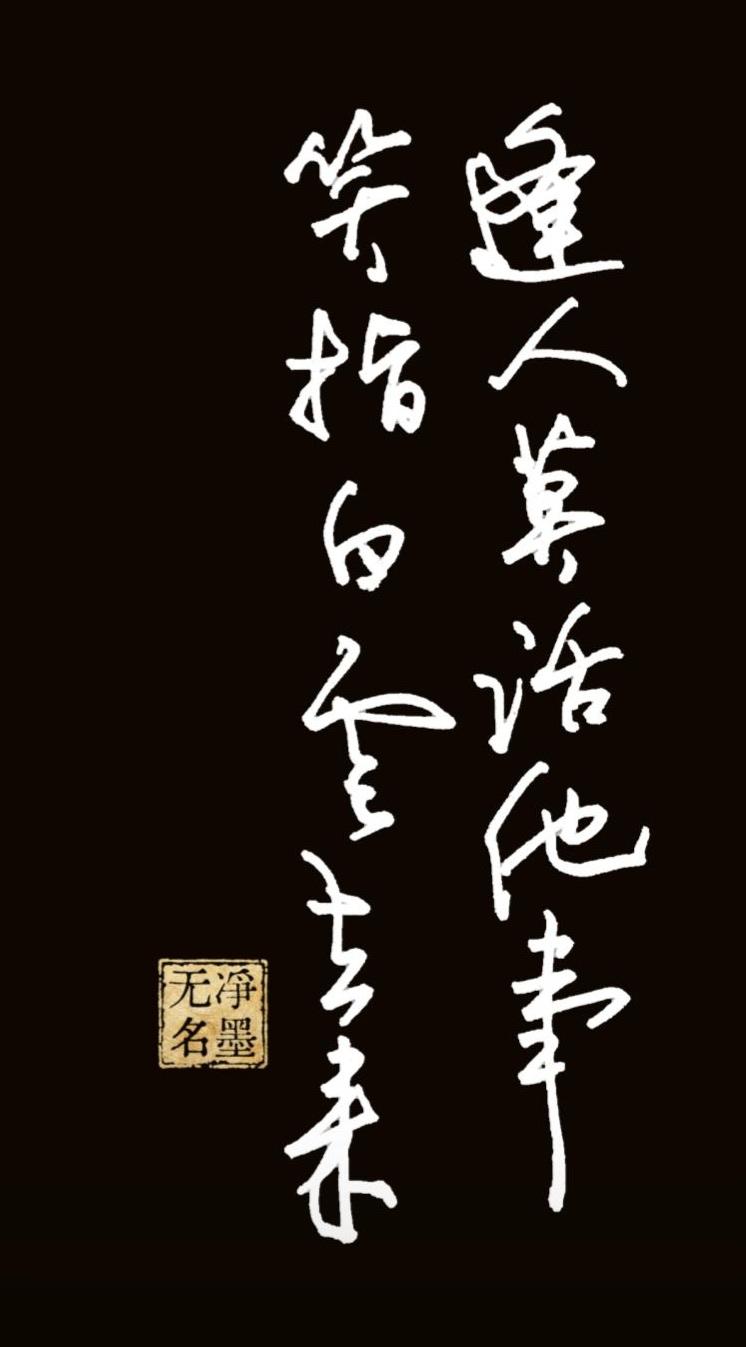 逢人莫话他事
笑指白云去来
凈墨
无名